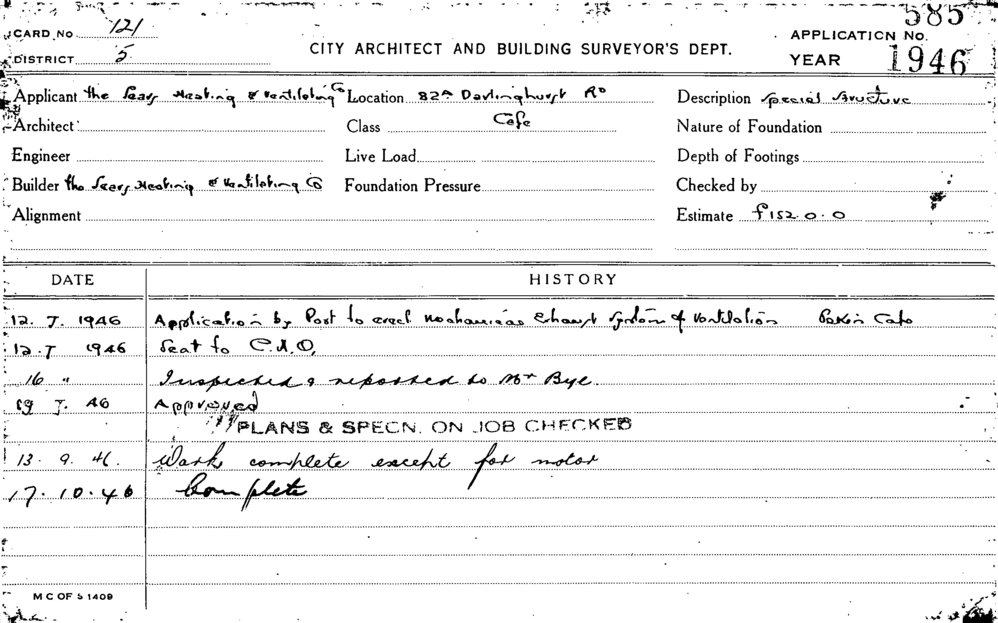 585
CARD No 121
APPLICATION No.
DISTRICT 5
CITY ARCHITECT AND BUILDING SURVEYOR'S DEPT.
YEAR 1946
Applicant The Sears Heating & Ventilating Co Location 82A Darlinghurst Rd Description special structure
Architect Class Cafe Nature of Foundation
Engineer Live Load Depth of Footings
Builder The Sears Heating & Ventilating Co Foundation Pressure Checked by
Alignment Estimate £152.0.0
DATE HISTORY
12. 7. 1946 Application by Post to erect mechanical Exhaust System of Ventilation Cafe
12. 7 1946 Sent to
16 " Inspected & reported to Mr Bye.
19 7. 46 Approved
PLANS & SPECN. ON JOB CHECKED
13. 9. 46. Work complete except for motor
17. 10. 46 Complete
M C OF S 1409